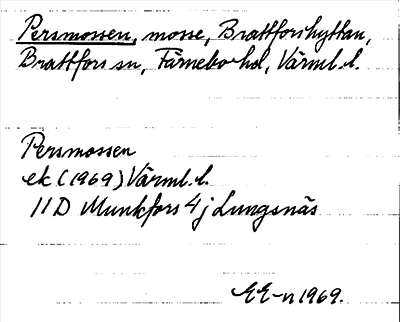 Persmossen, mosse, Brattforshyttan,
Brattfors sn, Färnebo hd, Värml. l.
Persmossen
ek (1969) Värml. l.
11D Munkfors 4j Lungsnäs
EE-n 1969.